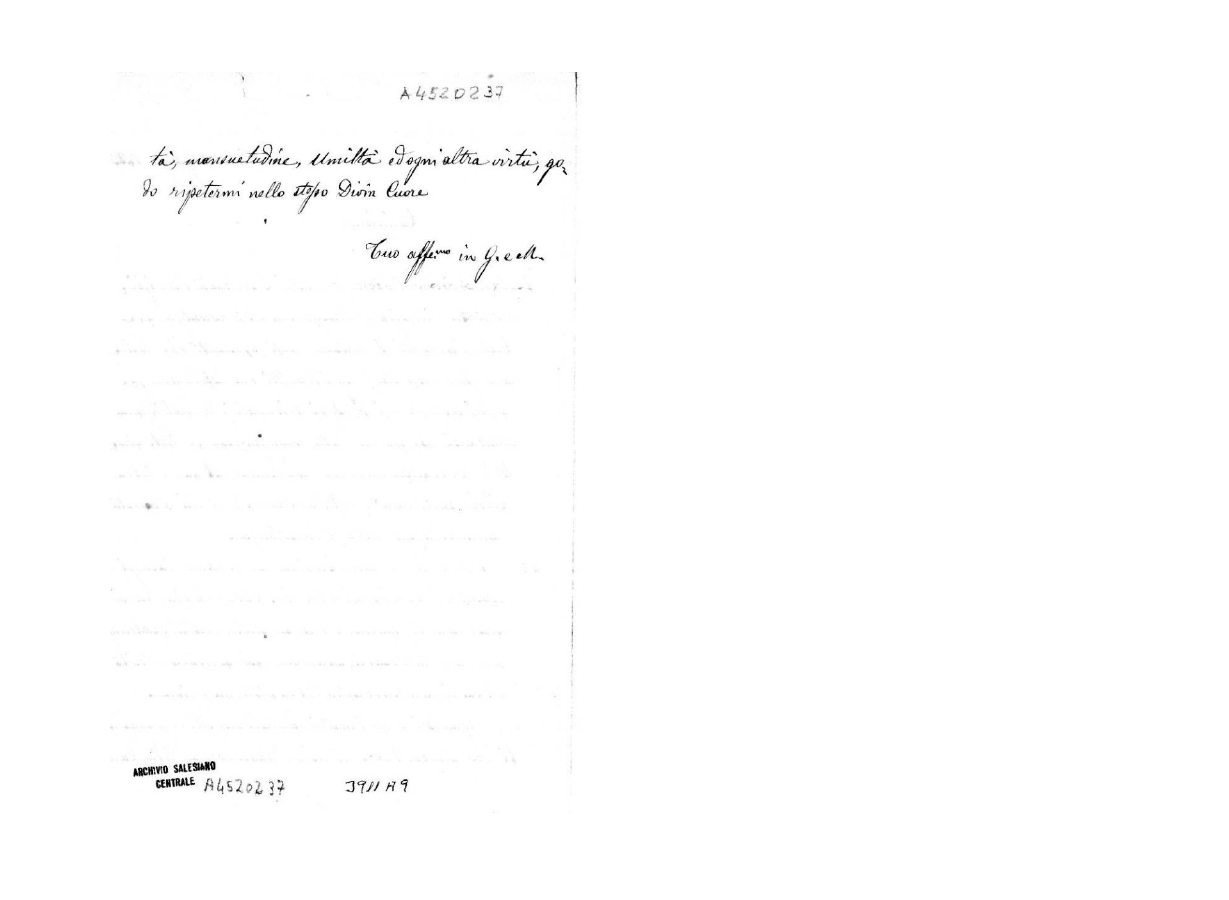 A4520237
tà, mansuetudine, Umiltà ed ogni altra virtù, go=
do ripetermi nello stesso Divin Cuore
Tuo affe.mo in G. e M.
ARCHIVIO SALESIANO
CENTRALE A4520237 3911 A9